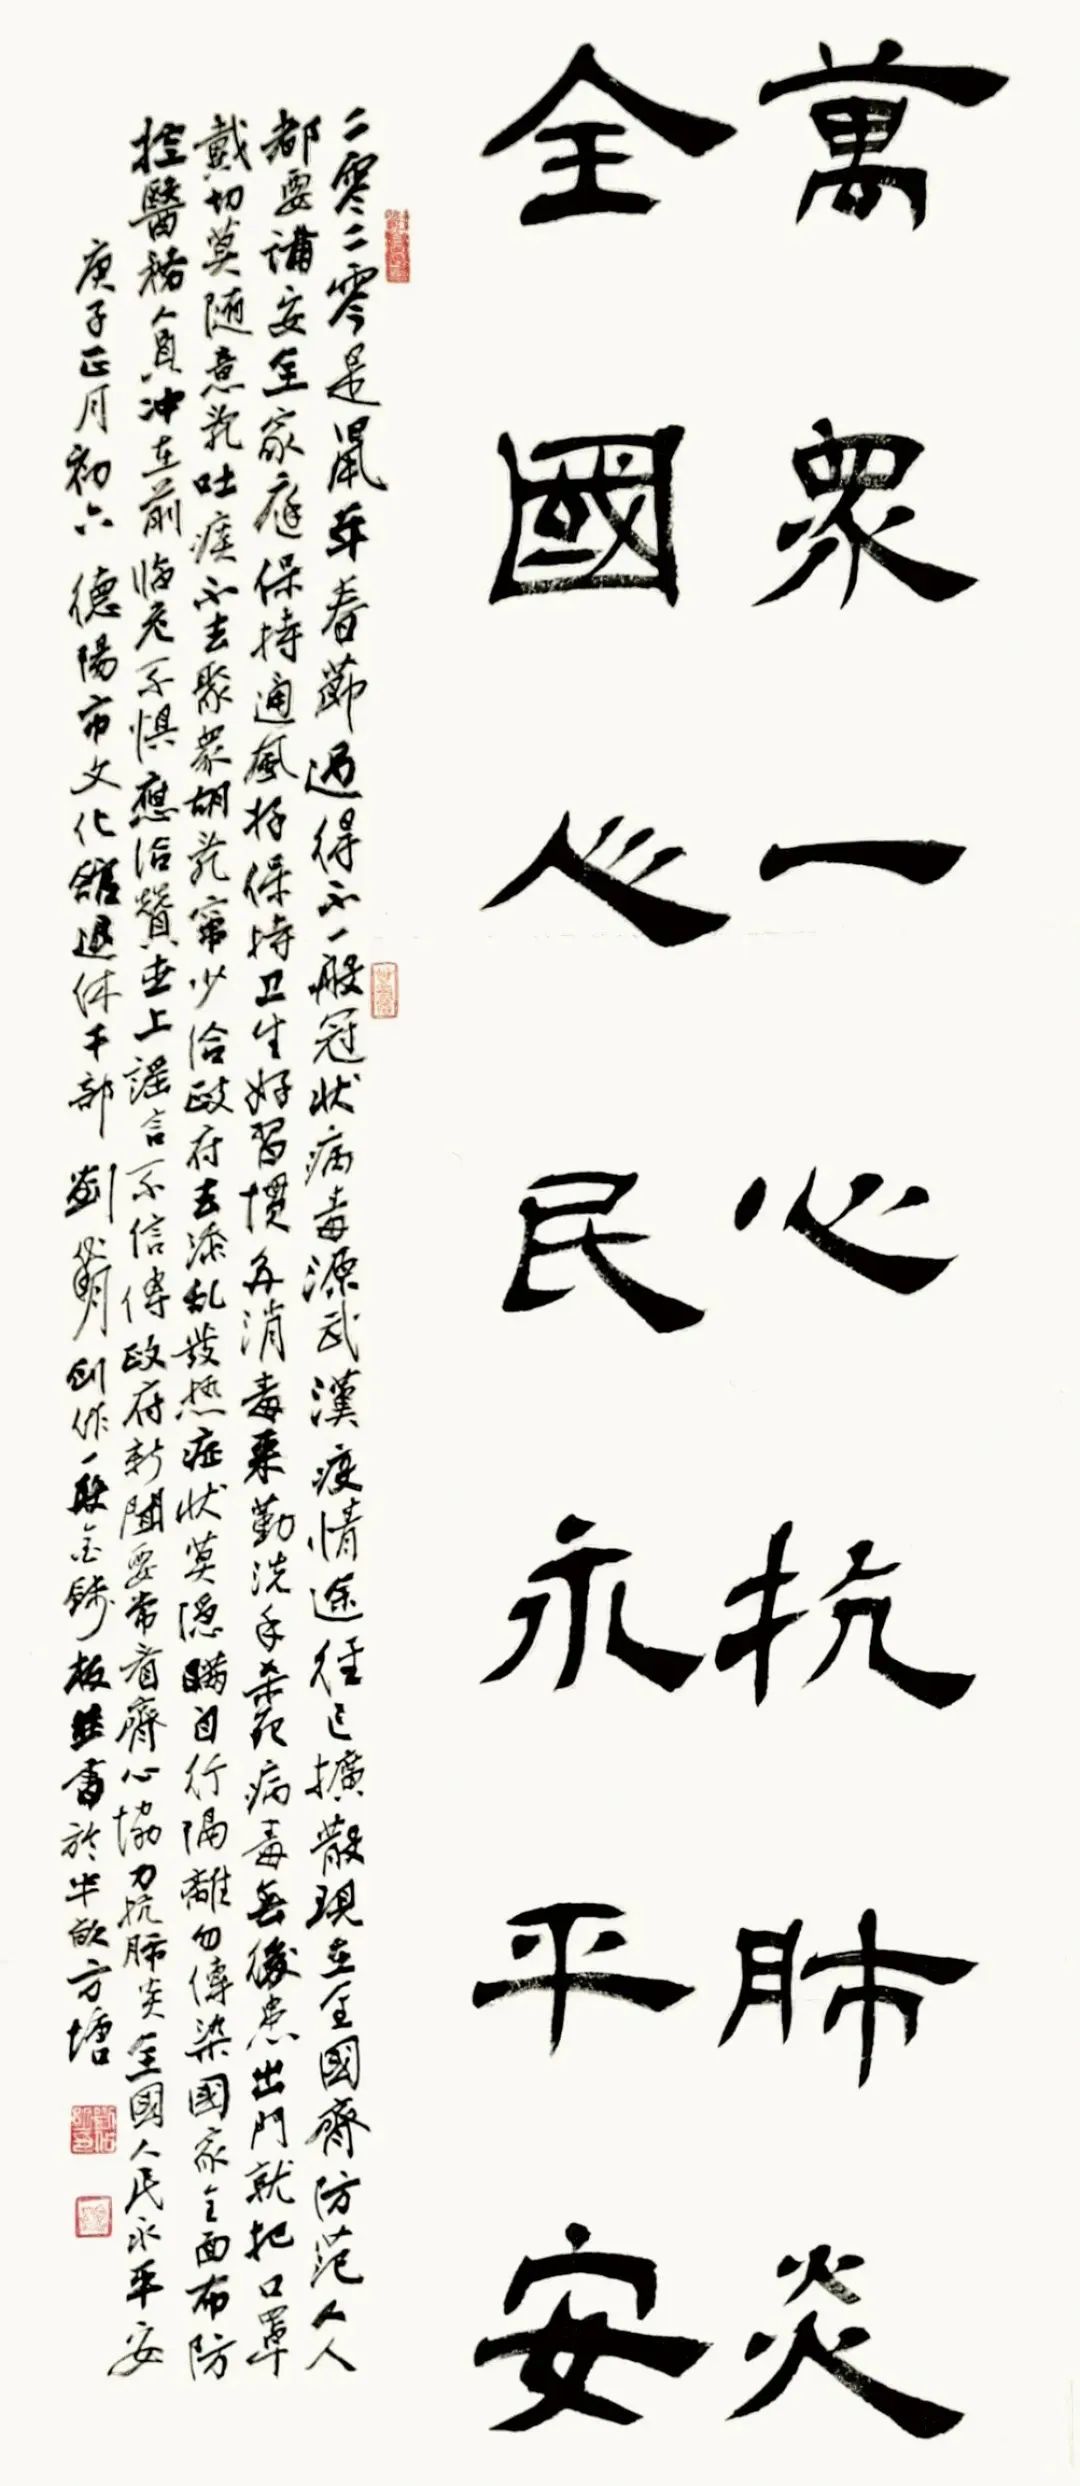 萬眾一心抗肺炎
全國人民永平安
二零二零是鼠年春節過得不一般冠状病毒源武漢疫情途径已擴散現在全國齊防范人人
都要講安全家庭保持通風好保持卫生好習慣多消毒来勤洗手杀死病毒無後患出門就把口罩
戴切莫随意乱吐痰不去聚衆胡乱窜少给政府去添乱發热症状莫隐瞒自行隔離勿傳染國家全面布防
控醫務人員冲在前临危不惧應给贊世上謡言不信傳政府新聞要常看齊心協力抗肺炎全國人民永平安
庚子正月初六 德陽市文化館退休干部 劉 明創作一段金錢板並書於半畝方塘